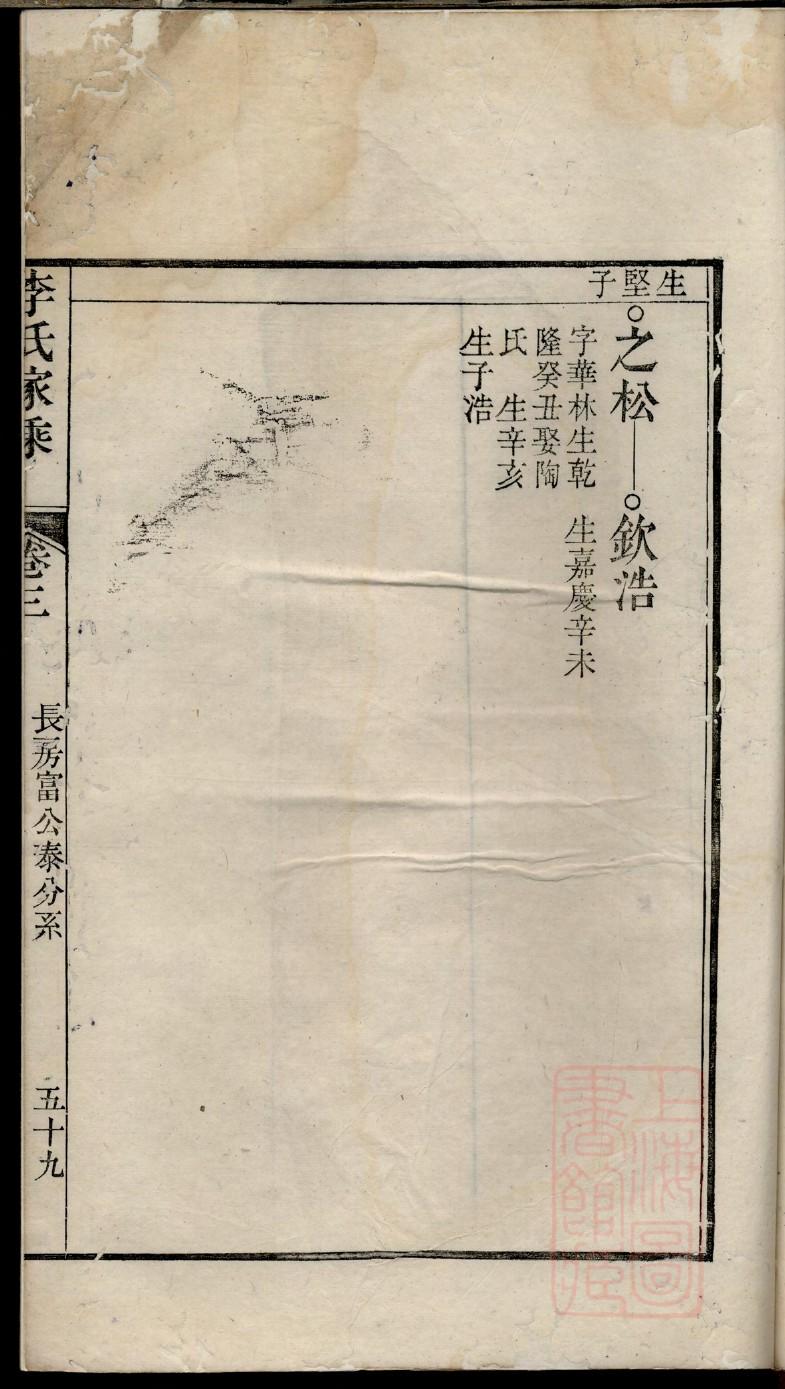 生堅子
之松
欽浩
字華林生乾
隆癸丑娶陶
氏 生辛亥
生子浩
生嘉慶辛未
李氏家乘
卷三
長房富公泰分系
五十九
上海圖
書館藏